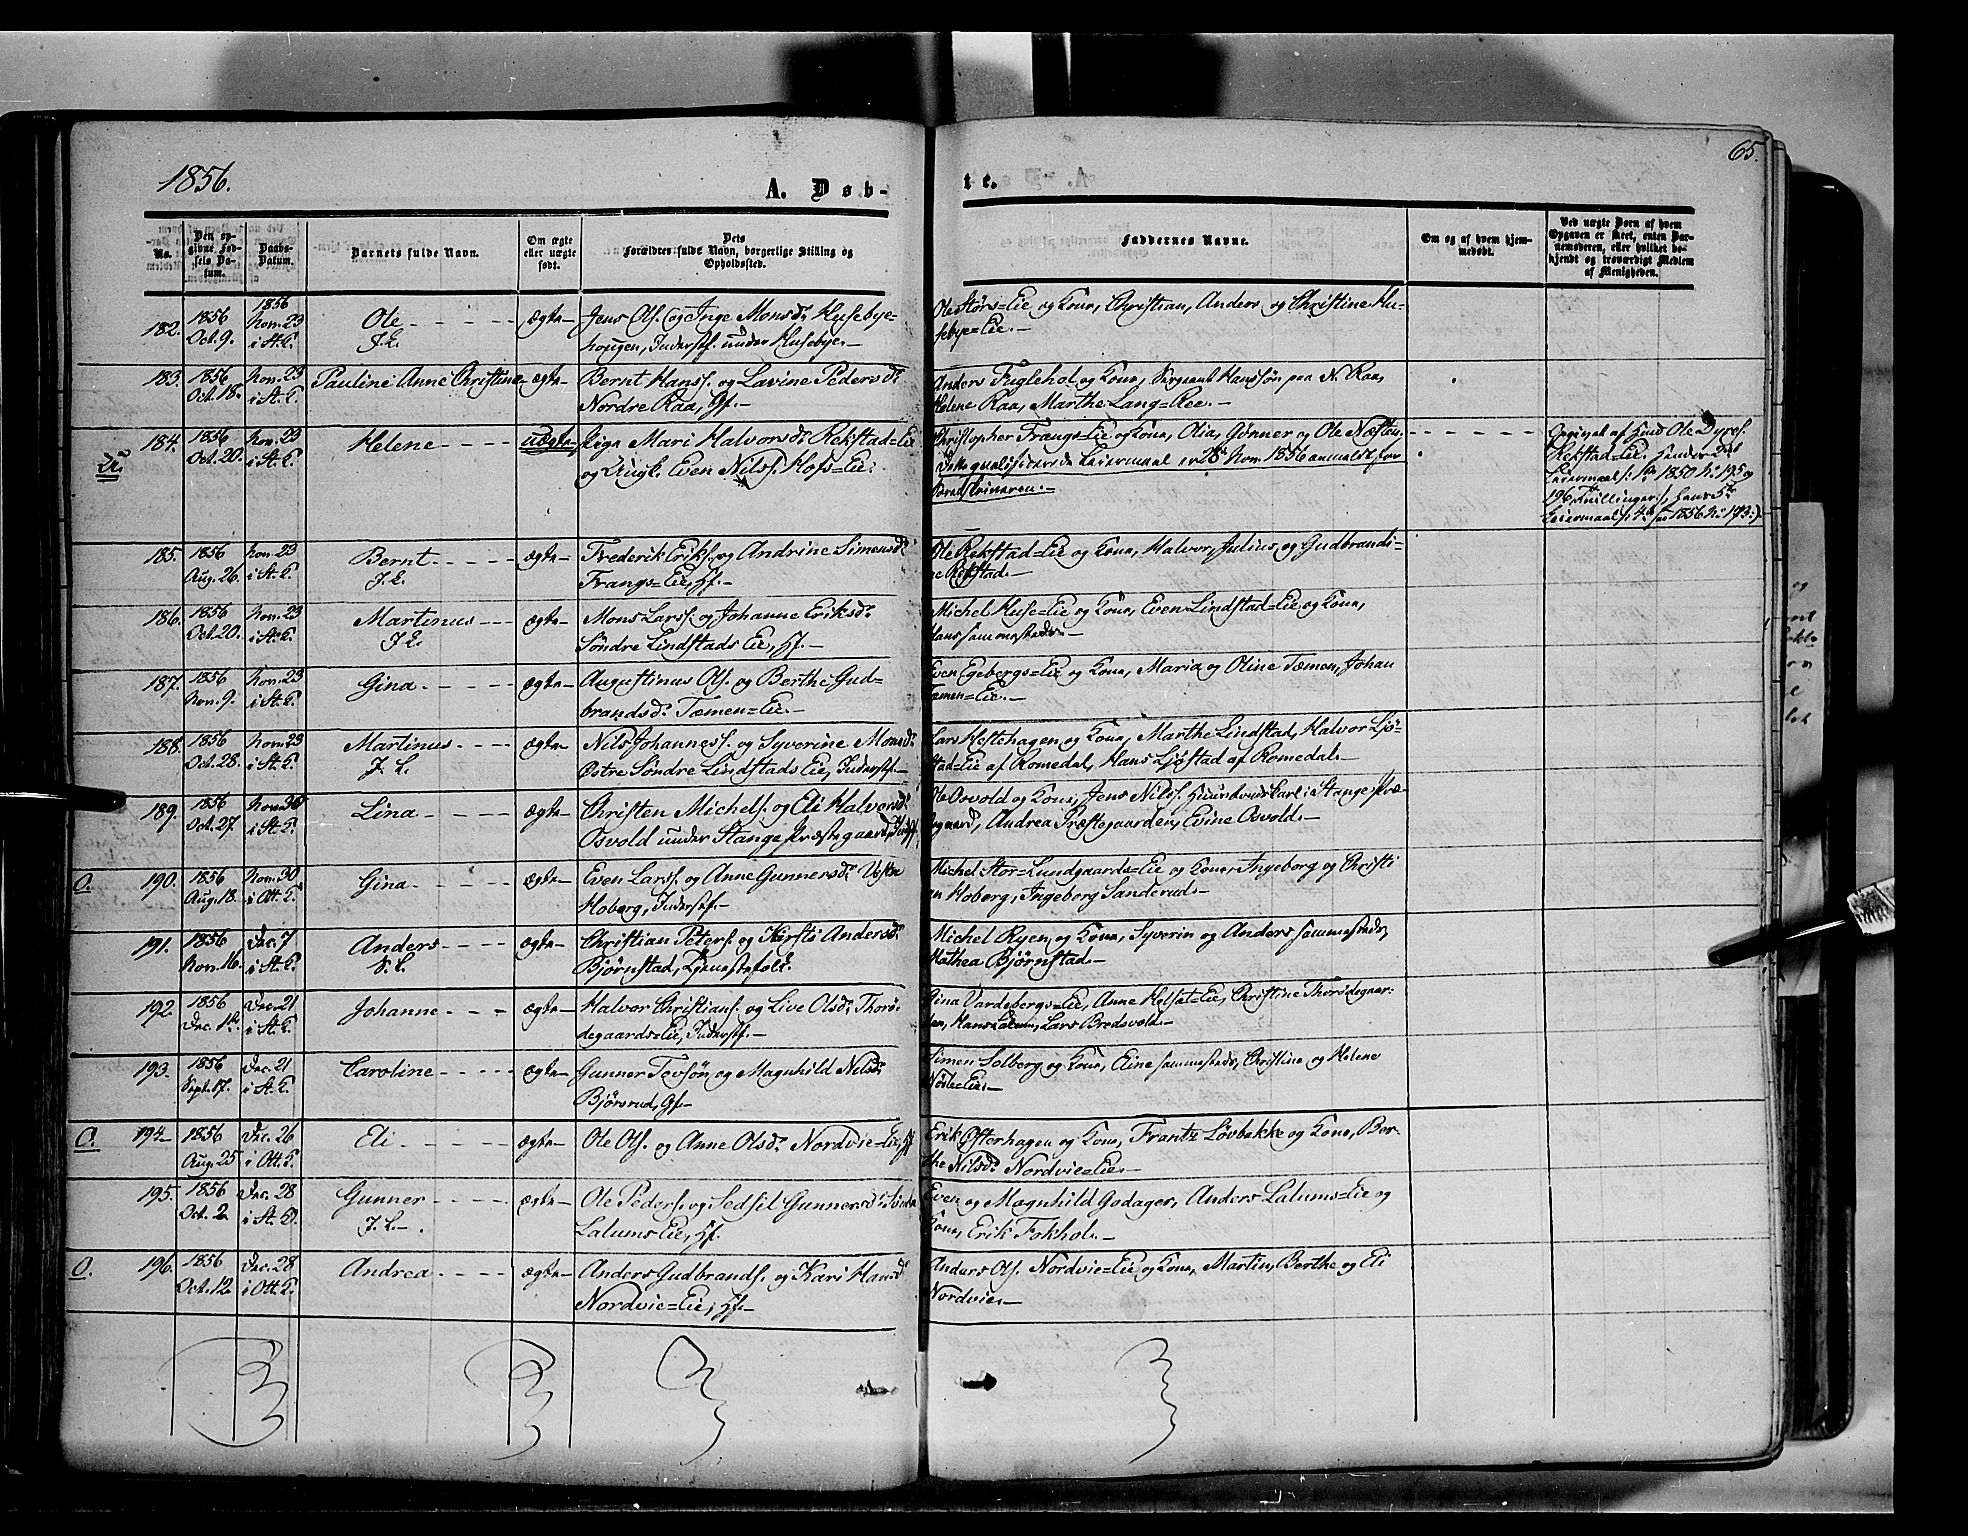 1856.
A. Døb-
te.
65.
No.
Den op-
givne Fød-
sels Da-
tum.
Daabs-
Datum.
Barnets fulde Navn.
Om ægte
eller uægte
født.
Dets
Forældres fulde Navn, borgerlige Stilling og
Opholdssted.
Faddernes Navne.
Om og af hvem hjem-
medøbt.
Ved uægte Børn af hvem
Opgaven er skeet, enten Bar-
nemoderen, eller hvilket be-
kjendt og troværdigt Medlem
af Menigheden.
182. 1856 Oct. 9. 1856 Nov. 23 i St. K. Ole J. L. ægte
Jens Ols. og Inge Monsd. Husebye-
hougen, Inderstf. under Husebye.
Ole Störs=Eie og Kone, Christian, Anders og Christine Hu-
sebye=Eie.
183. 1856 Oct. 18. Nov. 23 i St. K. Pauline Anne Christine ægte
Bernt Hanss. og Lavine Pedersd.
Nordre Raa, Gf.
Anders Fuglehol og Kone, Sergeant Hanssøn paa N. Raa,
Helene Raa, Marthe Lang=Ree.
184. 1856 Oct. 20. Nov. 23 i St. K. Helene uægte
Pige Mari Halvorsd. Rekstad=Eie
og Ungk. Even Nilss. Hofs=Eie.
Christopher Frangs=Eie og Kone, Olia, Gønner og Ole Næsten.
Leiermaal er 28 Nov. 1856 anmeldt for
Opgivet af Ole Dyres.
Rekstad=Eie. Hendes 2det
Leiermaal 1850 No 195 og
196 Tvillinger, Hans 5te
Leiermaal 1856 No 173.)
185. 1856 Aug. 26. Nov. 23 i St. K. Bernt J. L. ægte
Frederik Eriks. og Andrine Simensd.
Frangs=Eie, Hf.
Ole Rekstad=Eie og Kone, Halvor, Julius og Gudbrandi-
ne Rekstad.
186. 1856 Oct. 20. Nov. 23 i St. K. Martinus J. L. ægte
Mons Larss. og Johanne Eriksd.
Søndre Lindstads Eie, Hf.
Michel Huse=Eie og Kone, Even Lindstad=Eie og Kone,
Hans sammesteds.
187. 1856 Nov. 9. Nov. 23 i St. K. Gina ægte
Augustinus Ols. og Berthe Gud-
brandsd. Tæmen=Eie.
Even Egebergs=Eie og Kone, Maria og Oline Tæmen, Johan
Tæmen=Eie.
188. 1856 Oct. 28. Nov. 23 i St. K. Martinus J. L. ægte
Nils Johanness. og Syverine Monsd.
Østre Søndre Lindstads Eie, Inderstf.
Lars Heftehagen og Kone, Marthe Lindstad, Halvor Ljø-
stad=Eie af Romedal, Hans Ljøstad af Romedal.
189. 1856 Oct. 27. Nov. 30 i St. K. Lina ægte
Christen Michels. og Eli Halvorsd.
Osvold under Stange Præstegaard,
Ole Osvold og Kone, Jens Nilss. Huusmandskarl i Stange Præ-
stegaard, Andrea Præstegaarden, Evine Osvold.
O. 190. 1856 Aug. 18. Nov. 30 i Ott. K. Gina ægte
Even Larss. og Anne Gunnersd. Vestre
Hoberg, Inderstf.
Michel Stor=Lundgaards=Eie og Kone, Ingeborg og Christi
an Hoberg, Ingeborg Sanderud.
191. 1856 Nov. 16. Dec. 7 i St. K. Anders S. L. ægte
Christian Peters. og Kirsti Andersd.
Bjørnstad, Tjenestefolk.
Michel Ryen og Kone, Syverin og Anders sammesteds,
Mathea Bjørnstad.
192. 1856 Dec. 14. Dec. 21 i St. K. Johanne ægte
Halvor Christians. og Live Olsd. Thorø-
degaards=Eie, Inderstf.
Gina Vardebergs=Eie, Anne Helset=Eie, Christine Thorødegaar-
den, Hans, Lars Bredsvold.
193. 1856 Sept. 17. Dec. 21 i St. K. Caroline ægte
Gunner Tovsøn og Magnhild Nilsd.
Bjørsrud, Gf.
Simen Solberg og Kone, Eline sammesteds, Christine og Helene
Nøsle=Eie.
O. 194. 1856 Aug. 25 Dec. 26 i Ott. K. Eli ægte
Ole Ols. og Anne Olsd. Nordvie=Eie, Hf
Erik Østerhagen og Kone, Frantz Løvbakke og Kone, Ber-
the Nilsd. Nordvie=Eie.
195. 1856 Oct. 2 Dec. 28 i St. K. Gunner J. L. ægte
Ole Peders. og Sedsel Gunnersd.
Lalums Eie, Hf.
Even og Magnhild Godager, Anders Lalums=Eie og
Kone, Erik Fokhol.
O. 196. 1856 Oct. 12 Dec. 28 i Ott. K. Andrea ægte
Anders Gudbrands. og Kari Hansd.
Nordvie=Eie, Hf.
Anders Ols. Nordvie=Eie og Kone, Martin, Berthe og Eli
Nordvie.